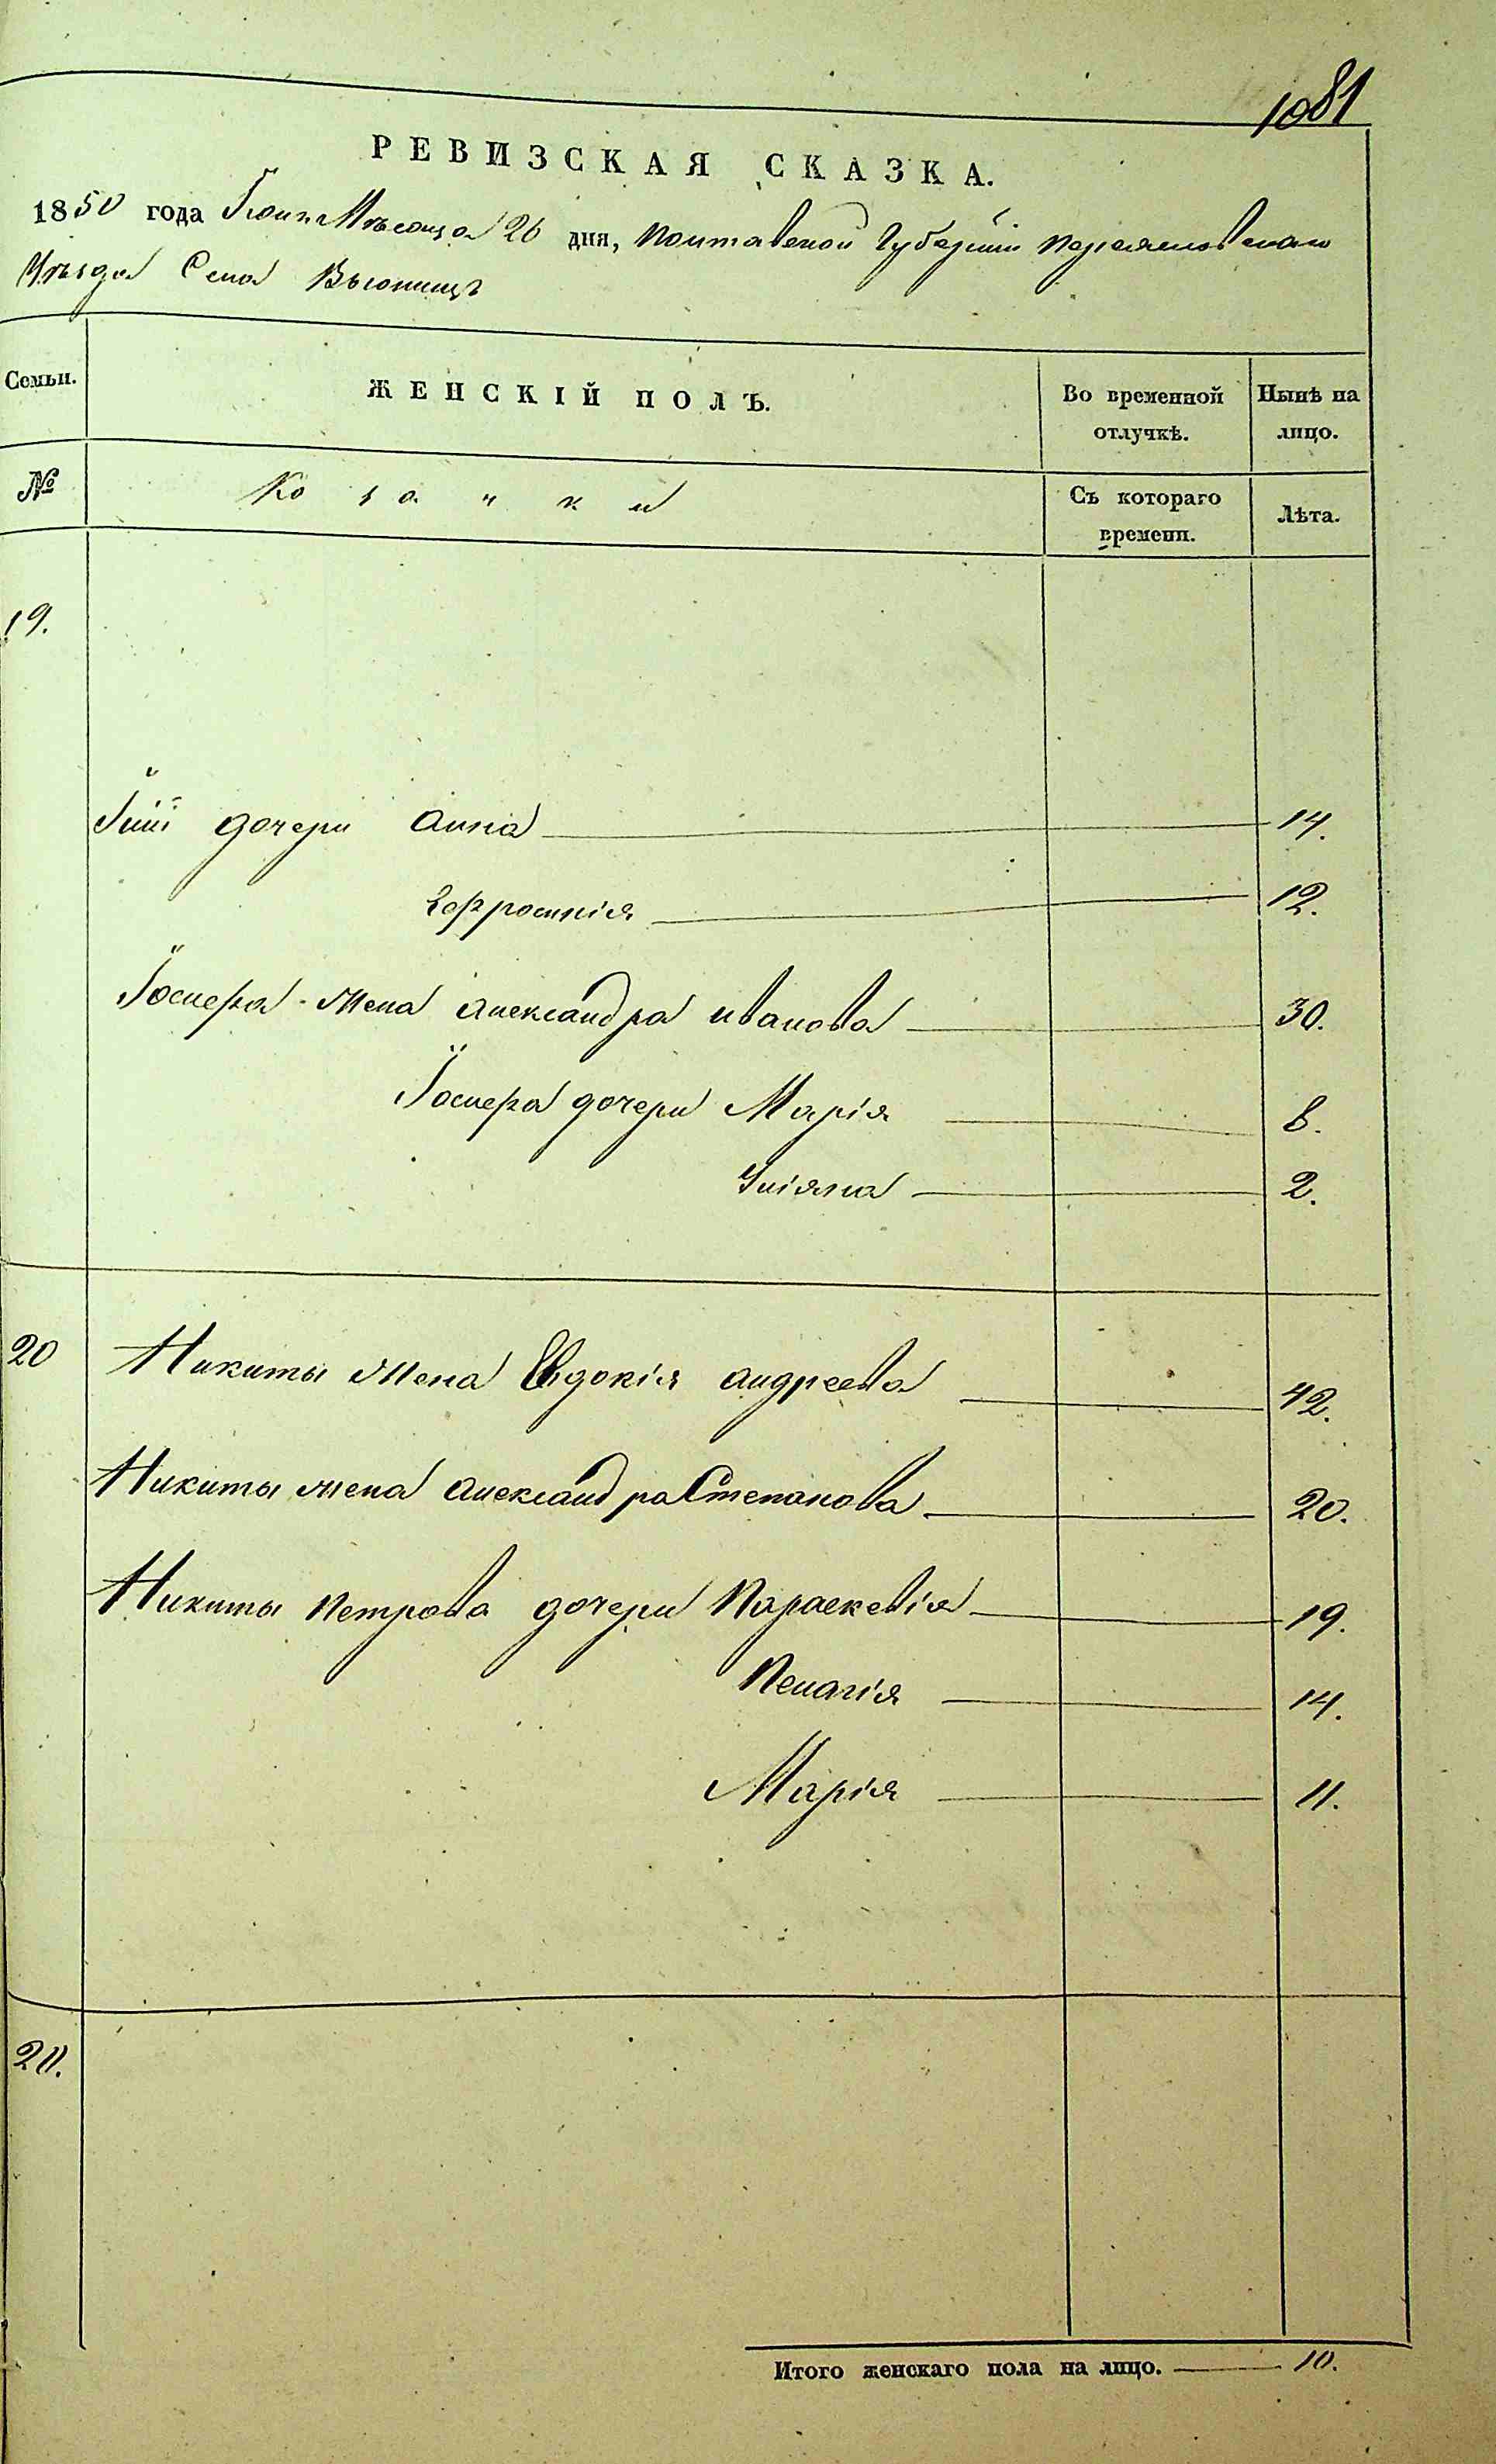 1081
РЕВИЗСКАЯ СКАЗКА.
1850 года Іюня Мѣсяца 26 дня, Полтавской Губерніи Переяславскаго
Уѣзда Села Вьюнищъ
Семьи.
ЖЕНСКІЙ ПОЛЪ.
Во временной отлучкѣ.
Нынѣ на лицо.
№
Козачки
Съ котораго времени.
Лѣта.
19.
дочери Анна 14.
Ефросинія 12.
Іосифа Жена Александра Иванова 30.
Іосифа дочери Марія 8.
Уліяна 2.
20 Никиты Жена Евдокія Андреева 42.
Никиты жена Александра Степанова 20.
Никиты Петрова дочери Параскевія 19.
Пелагія 14.
Марія 11.
21.
Итого женскаго пола на лицо. 10.